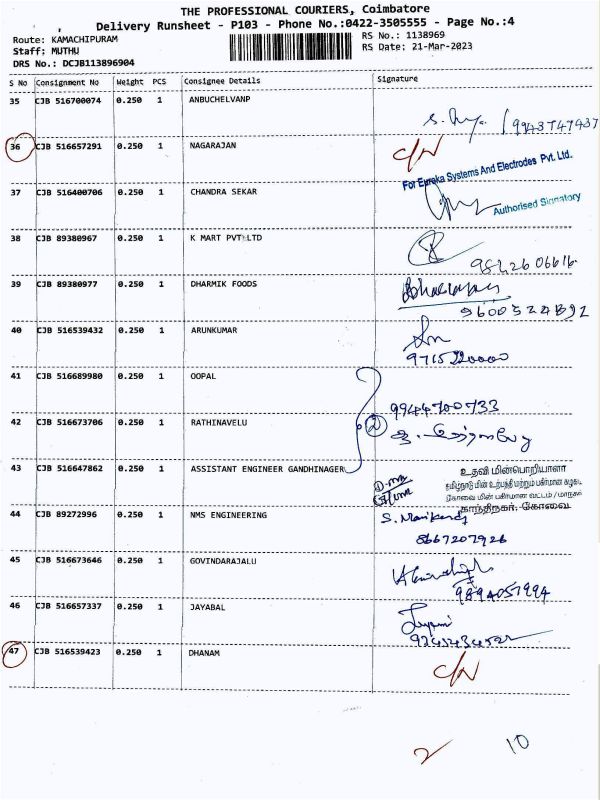 THE PROFESSIONAL COURIERS, Coimbatore
Delivery Runsheet - P103 - Phone No.:0422-3505555 - Page No.:4
Route: KAMACHIPURAM RS No.: 1138969
Staff: MUTHU RS Date: 21-Mar-2023
DRS No.: DCJB113896904
S No Consignment No Weight PCS Consignee Details Signature
35 CJB 516700074 0.250 1 ANBUCHELVANP
9943747437
36 CJB 516657291 0.250 1 NAGARAJAN C/N
For Eureka Systems And Electrodes Pvt. Ltd.
37 CJB 516400706 0.250 1 CHANDRA SEKAR
Authorised Signatory
38 CJB 89380967 0.250 1 K MART PVT LTD
9842606616
39 CJB 89380977 0.250 1 DHARMIK FOODS
9600524892
40 CJB 516539432 0.250 1 ARUNKUMAR
9715220000
41 CJB 516689980 0.250 1 OOPAL
9944700733
42 CJB 516673706 0.250 1 RATHINAVELU
43 CJB 516647862 0.250 1 ASSISTANT ENGINEER GANDHINAGER
உதவி மின்பொறியாளர்
தமிழ்நாடு மின் உற்பத்தி மற்றும் பகிர்மான கழகம்
கோவை மின் பகிர்மான வட்டம் / மாநகர்
காந்திநகர், கோவை
44 CJB 89272996 0.250 1 NMS ENGINEERING S. Manikandan
8667207926
45 CJB 516673646 0.250 1 GOVINDARAJALU
9894057994
46 CJB 516657337 0.250 1 JAYABAL
47 CJB 516539423 0.250 1 DHANAM C/N
2 10